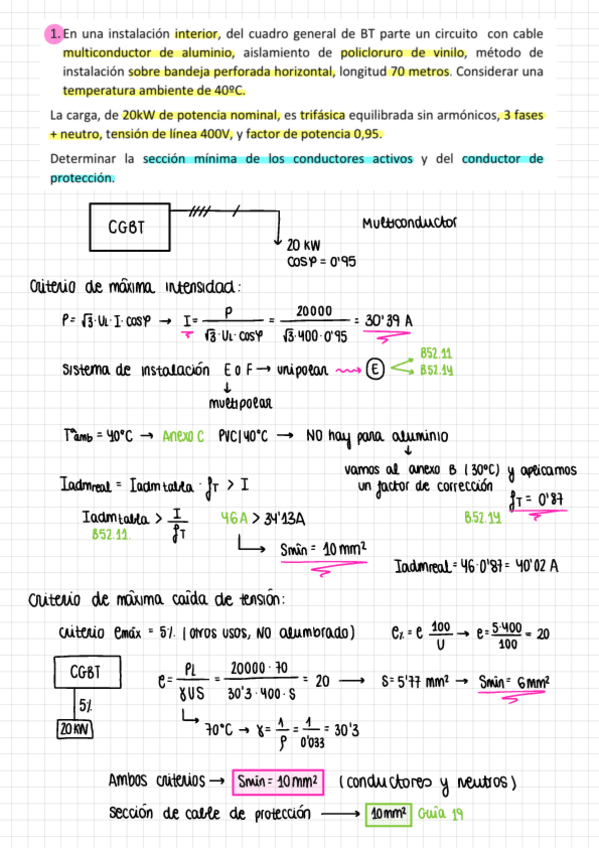 1. En una instalación interior, del cuadro general de BT parte un circuito con cable
multiconductor de aluminio, aislamiento de policloruro de vinilo, método de
instalación sobre bandeja perforada horizontal, longitud 70 metros. Considerar una
temperatura ambiente de 40ºC.
La carga, de 20kW de potencia nominal, es trifásica equilibrada sin armónicos, 3 fases
+ neutro, tensión de línea 400V, y factor de potencia 0,95.
Determinar la sección mínima de los conductores activos y del conductor de
protección.
CGBT
Multiconductor
20 KW
cosφ = 0'95
Criterio de máxima intensidad:
P = √3·UL·I·cosφ → I = P / √3·UL·cosφ = 20000 / √3·400·0'95 = 30'39 A
Sistema de instalación E o F → unipolar → E
B52.11
B52.14
↓
multipolar
Tªamb = 40°C → Anexo C PVC/40°C → NO hay para aluminio
↓
vamos al anexo B (30°C) y aplicamos
un factor de corrección
fT = 0'87
B.52.14
Iadmreal = Iadmtabla · fT > I
Iadmtabla > I / fT 46A > 34'13A
B52.11.
Smín = 10mm²
Iadmreal = 46·0'87 = 40'02 A
Criterio de máxima caída de tensión:
criterio emáx = 5% (otros usos, NO alumbrado) e% = e 100 / U → e = 5·400 / 100 = 20
CGBT
5%
20 KW
e = PL / γUS = 20000·70 / 30'3·400·S = 20 → S = 5'77 mm² → Smín = 6mm²
70°C → γ = 1 / ρ = 1 / 0'033 = 30'3
Ambos criterios → Smín = 10mm² (conductores y neutros)
sección de cable de protección → 10mm² Guía 19